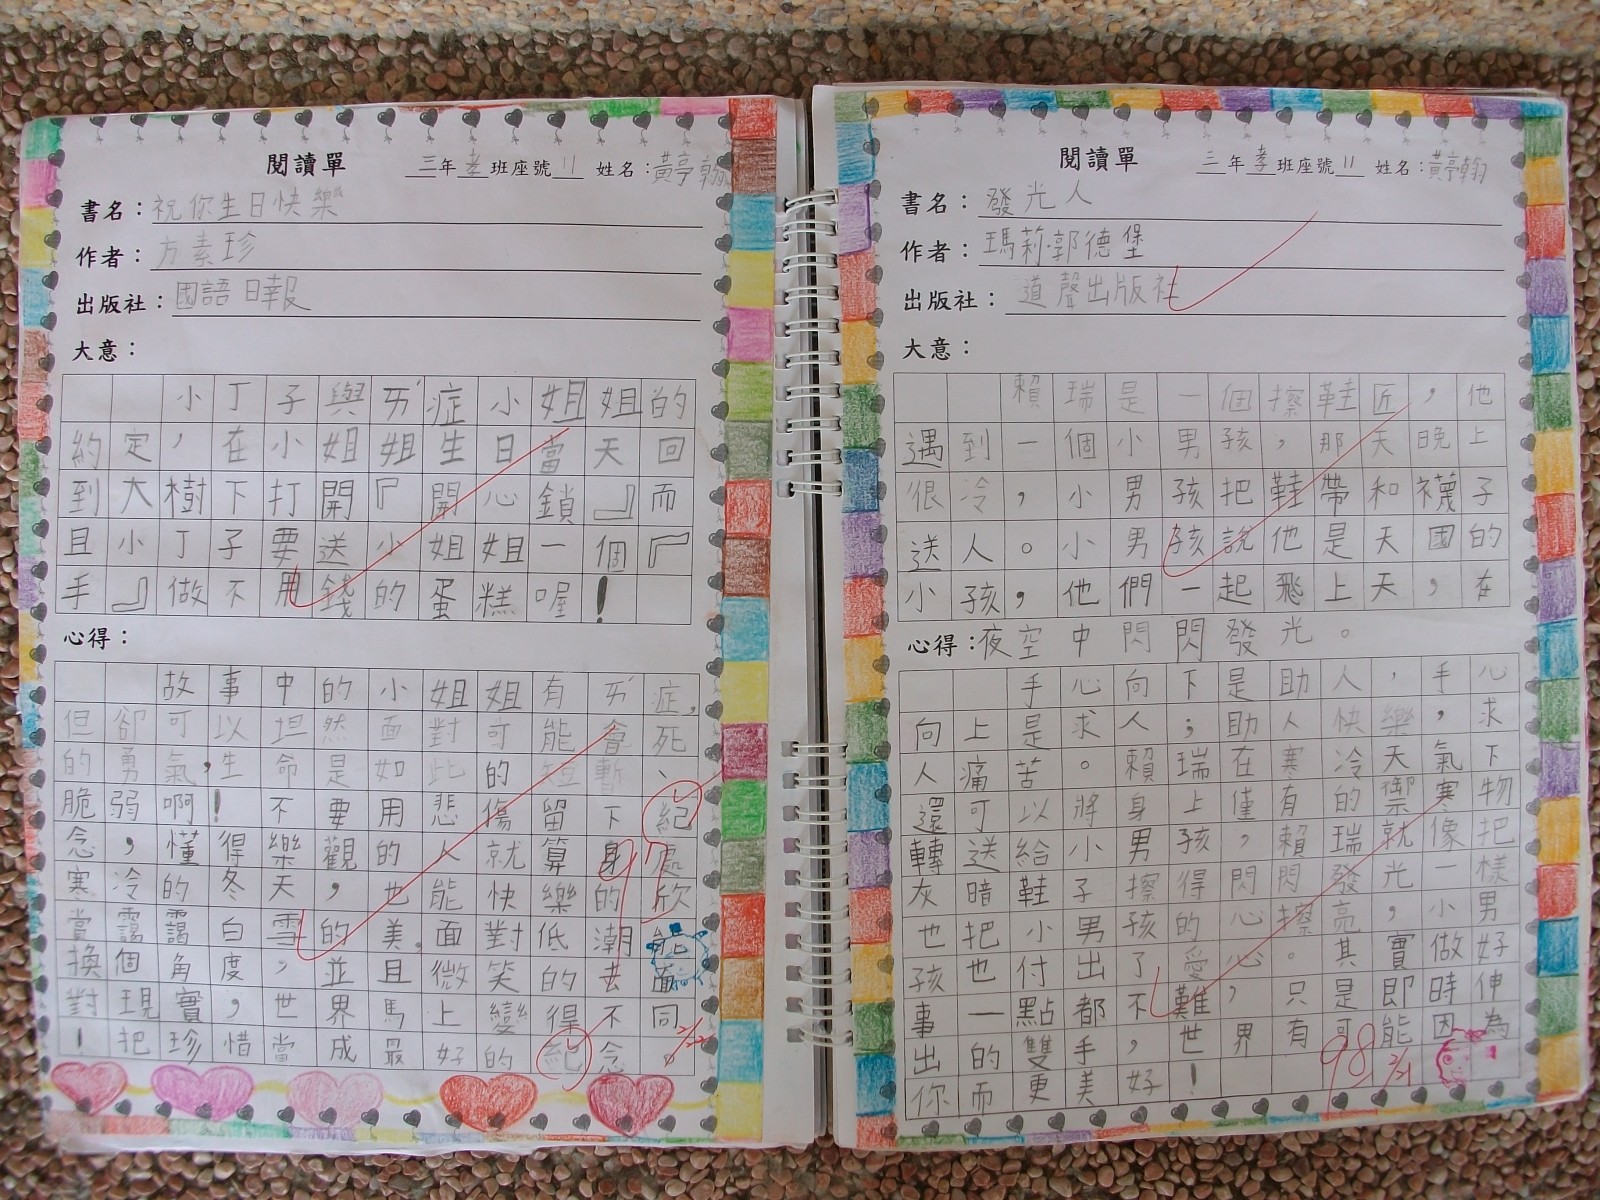 閱讀單
三年孝班座號11 姓名:黃亭翰
書名:祝你生日快樂
作者:方素珍
出版社:國語日報
大意:
小丁子與ㄞˊ症小姐姐的
約定,在小姐姐生日當天回
到大樹下打開『開心鎖』而
且小丁子要送小姐姐一個『
手』做不用錢的蛋糕喔!
心得:
故事中的小姐姐有ㄞˊ症,
但卻可以坦然面對可能會死
的勇氣,生命是如此的短暫、
脆弱啊!不要用悲傷留下紀
念,懂得樂觀的人就算身處
寒冷的冬天,也能快樂的欣
賞靄靄白雪的美,面對低潮能
換個角度,並且微笑的去面
對現實,世界馬上變得不同
!把珍惜當成最好的紀念。
97
2/22
閱讀單
三年孝班座號11 姓名:黃亭翰
書名:發光人
作者:瑪莉·郭德堡
出版社:道聲出版社
大意:
賴瑞是一個擦鞋匠,他
遇到一個小男孩,那天晚上
很冷,小男孩把鞋帶和襪子
送人。小男孩說他是天國的
小孩,他們一起飛上天,在
心得:夜空中閃閃發光。
手心向下是助人,手心
向上是求人;助人快樂,求
人痛苦。賴瑞在寒冷天氣下
還可以將身上僅有的禦寒物
轉送給小男孩,賴瑞就像把
灰暗鞋子擦得閃閃發光一樣
也把小男孩的心擦亮,小男
孩也付出了愛心。其實做好
事一點都不難,只是即時伸
出的雙手,世界有可能因為
你而更美好!
98
2/21